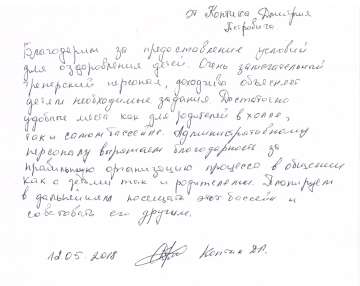 от Коптика Дмитрия
Петровича
Благодарим за предоставление условий
для оздоровления детей. Очень замечательный
тренерский персонал, доходчиво объясняет
детям необходимые задания. Достаточно
удобные места как для родителей в холле,
так и самом бассейне. Административному
персоналу выражаем благодарность за
правильную организацию процесса в общении
как с детьми так и родителями. Планируем
в дальнейшем посещать этот бассейн и
советовать его другим.
12.05 2018 Коптик Д.П.